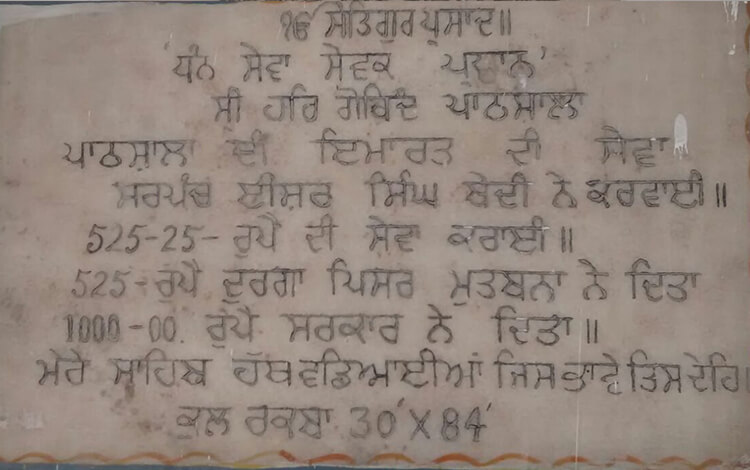 ੴ ਸਤਿਗੁਰ ਪ੍ਰਸਾਦਿ॥
'ਧੰਨ ਸੇਵਾ ਸੇਵਕ ਪ੍ਰਧਾਨ'
ਸ੍ਰੀ ਹਰਿ ਗੋਬਿੰਦ ਪਾਠਸਾਲਾ
ਪਾਠਸ਼ਾਲਾ ਦੀ ਇਮਾਰਤ ਦੀ ਸੇਵਾ
ਸਰਪੰਚ ਈਸ਼ਰ ਸਿੰਘ ਬੇਦੀ ਨੇ ਕਰਵਾਈ॥
525-25- ਰੁਪੈ ਦੀ ਸੇਵਾ ਕਰਾਈ॥
525-ਰੁਪੈ ਦੁਰਗਾ ਪਿਸਰ ਮੁਤਬਨਾ ਨੇ ਦਿਤਾ
1000-00. ਰੁਪੈ ਸਰਕਾਰ ਨੇ ਦਿਤਾ॥
ਮੇਰੇ ਸਾਹਿਬ ਹੱਥ ਵਡਿਆਈਆਂ ਜਿਸ ਭਾਵੇ ਤਿਸ ਦੇਹਿ॥
ਕੁਲ ਰਕਬਾ 30'X84'